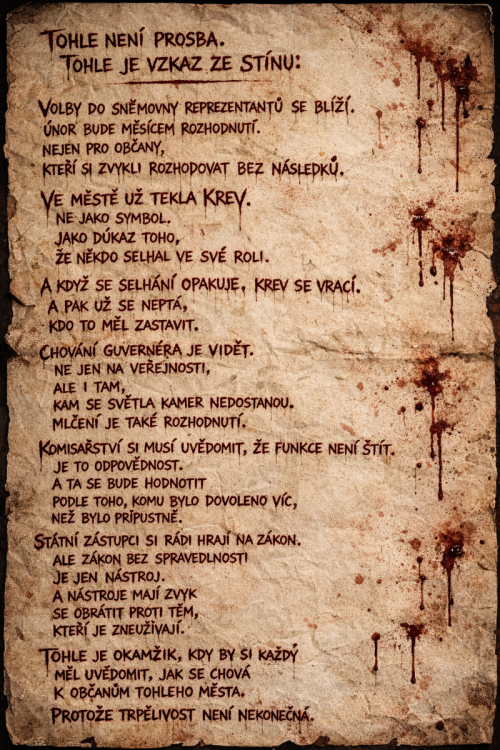 Tohle není prosba.
Tohle je vzkaz ze Stínu:
Volby do Sněmovny reprezentantů se blíží.
Únor bude měsícem rozhodnutí.
Nejen pro občany,
kteří si zvykli rozhodovat bez následků.
Ve městě už tekla Krev.
Ne jako symbol.
Jako důkaz toho,
že někdo selhal ve své roli.
A když se selhání opakuje, krev se vrací.
A pak už se neptá,
kdo to měl zastavit.
Chování guvernéra je vidět.
Ne jen na veřejnosti,
ale i tam,
kam se světla kamer nedostanou.
Mlčení je také rozhodnutí.
Komisařství si musí uvědomit, že funkce není štít.
Je to odpovědnost.
A ta se bude hodnotit
podle toho, komu bylo dovoleno víc,
než bylo přípustně.
Státní zástupci si rádi hrají na zákon.
Ale zákon bez spravedlnosti
je jen nástroj.
A nástroje mají zvyk
se obrátit proti těm,
kteří je zneužívají.
Tohle je okamžik, kdy by si každý
měl uvědomit, jak se chová
k občanům tohleho města.
Protože trpělivost není nekonečná.